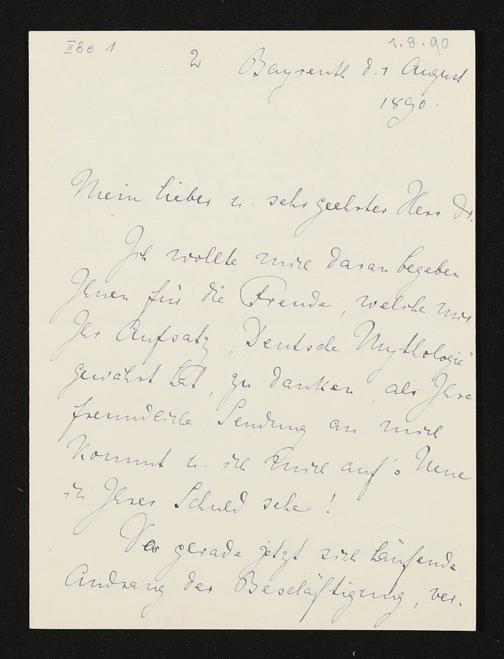 IIBe 1
1.8.90
2 Bayreuth d. 1 August
1890.
Mein lieber u. sehr geehrter Herr Dr.
Ich wollte mich daran begeben
Ihnen für die Freude, welche mir
Ihr Aufsatz „Deutsche Mythologie"
gewährt hat, zu danken, als Ihre
freundliche Sendung an mich
kommt u. ich mich auf's Neue
in Ihrer Schuld sehe!
Der gerade jetzt sich häufende
Andrang der Beschäftigung, ver-